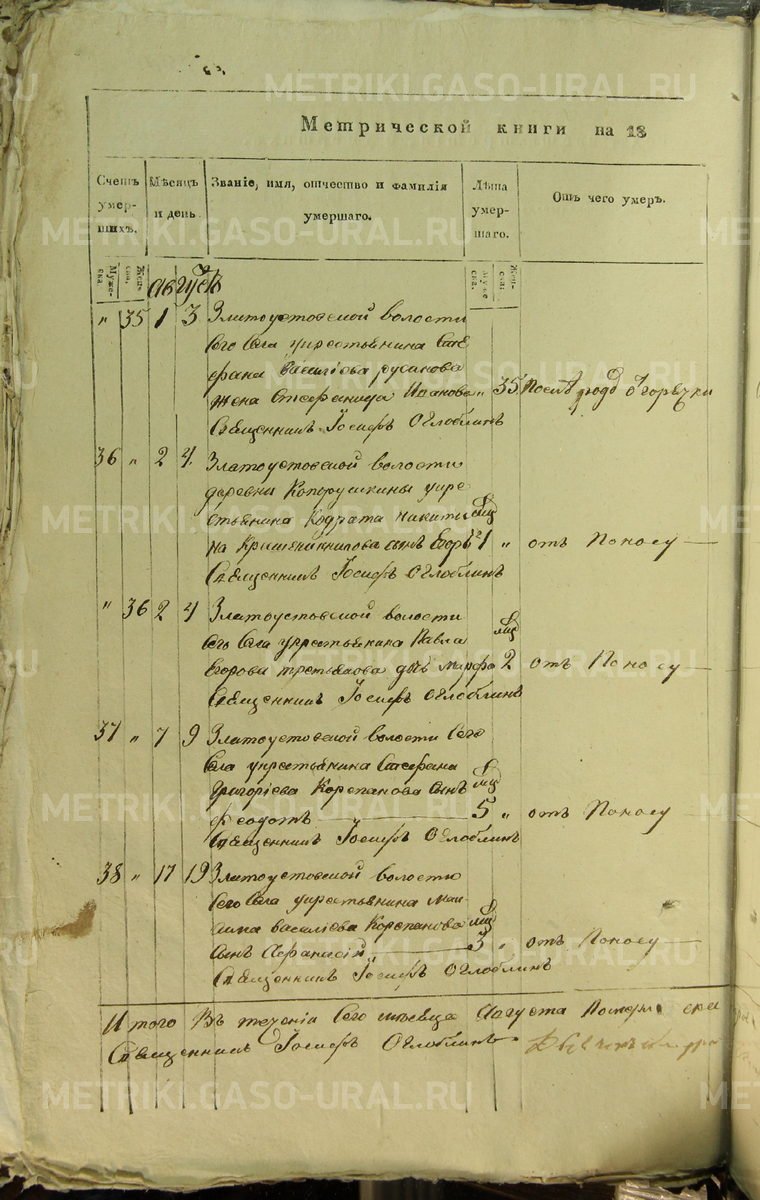 METRIKI.GASO-URAL.RU
Метрической книги на 18
Счетъ умер-шихъ. Мѣсяцъ и день. Званіе, имя, отчество и фамилія умершаго. Лѣта умер-шаго. Отъ чего умеръ.
Муже-ска. Жен-ска. Муже-ска. Жен-ска.
Августъ
" 35 1 3 Златоустовской волости
сего села крестьянина Сте
фана Васильева Русанова
жена Стефанида Иванова " 35 После родо в горячки
Священникъ Іосифъ Оглоблинъ
36 " 2 4 Златоустовской волости
деревни крѣ
стьянина Кодрата Никити мец
на сынъ Егоръ 1 " отъ Поносу
Священникъ Іосифъ Оглоблинъ
" 36 2 4 Златоустовской волости
сего села крестьянина Павла мец
Егорова Третьякова дчь Марфа 2 отъ Поносу
Священникъ Іосифъ Оглоблинъ
37 " 7 9 Златоустовской волости сего
села крестьянина Стефана
Григоріева Корепанова сынъ мец
Феодотъ 5 " отъ Поносу
Священникъ Іосифъ Оглоблинъ
38 " 17 19 Златоустовской волости
сего села крестьянина Мак
сима Василіева Корепанова мец
сынъ Афанасій 3 " отъ Поносу
Священникъ Іосифъ Оглоблинъ
Итого Въ теченіи сего месеца Августа Помер
Священникъ Іосифъ Оглоблинъ